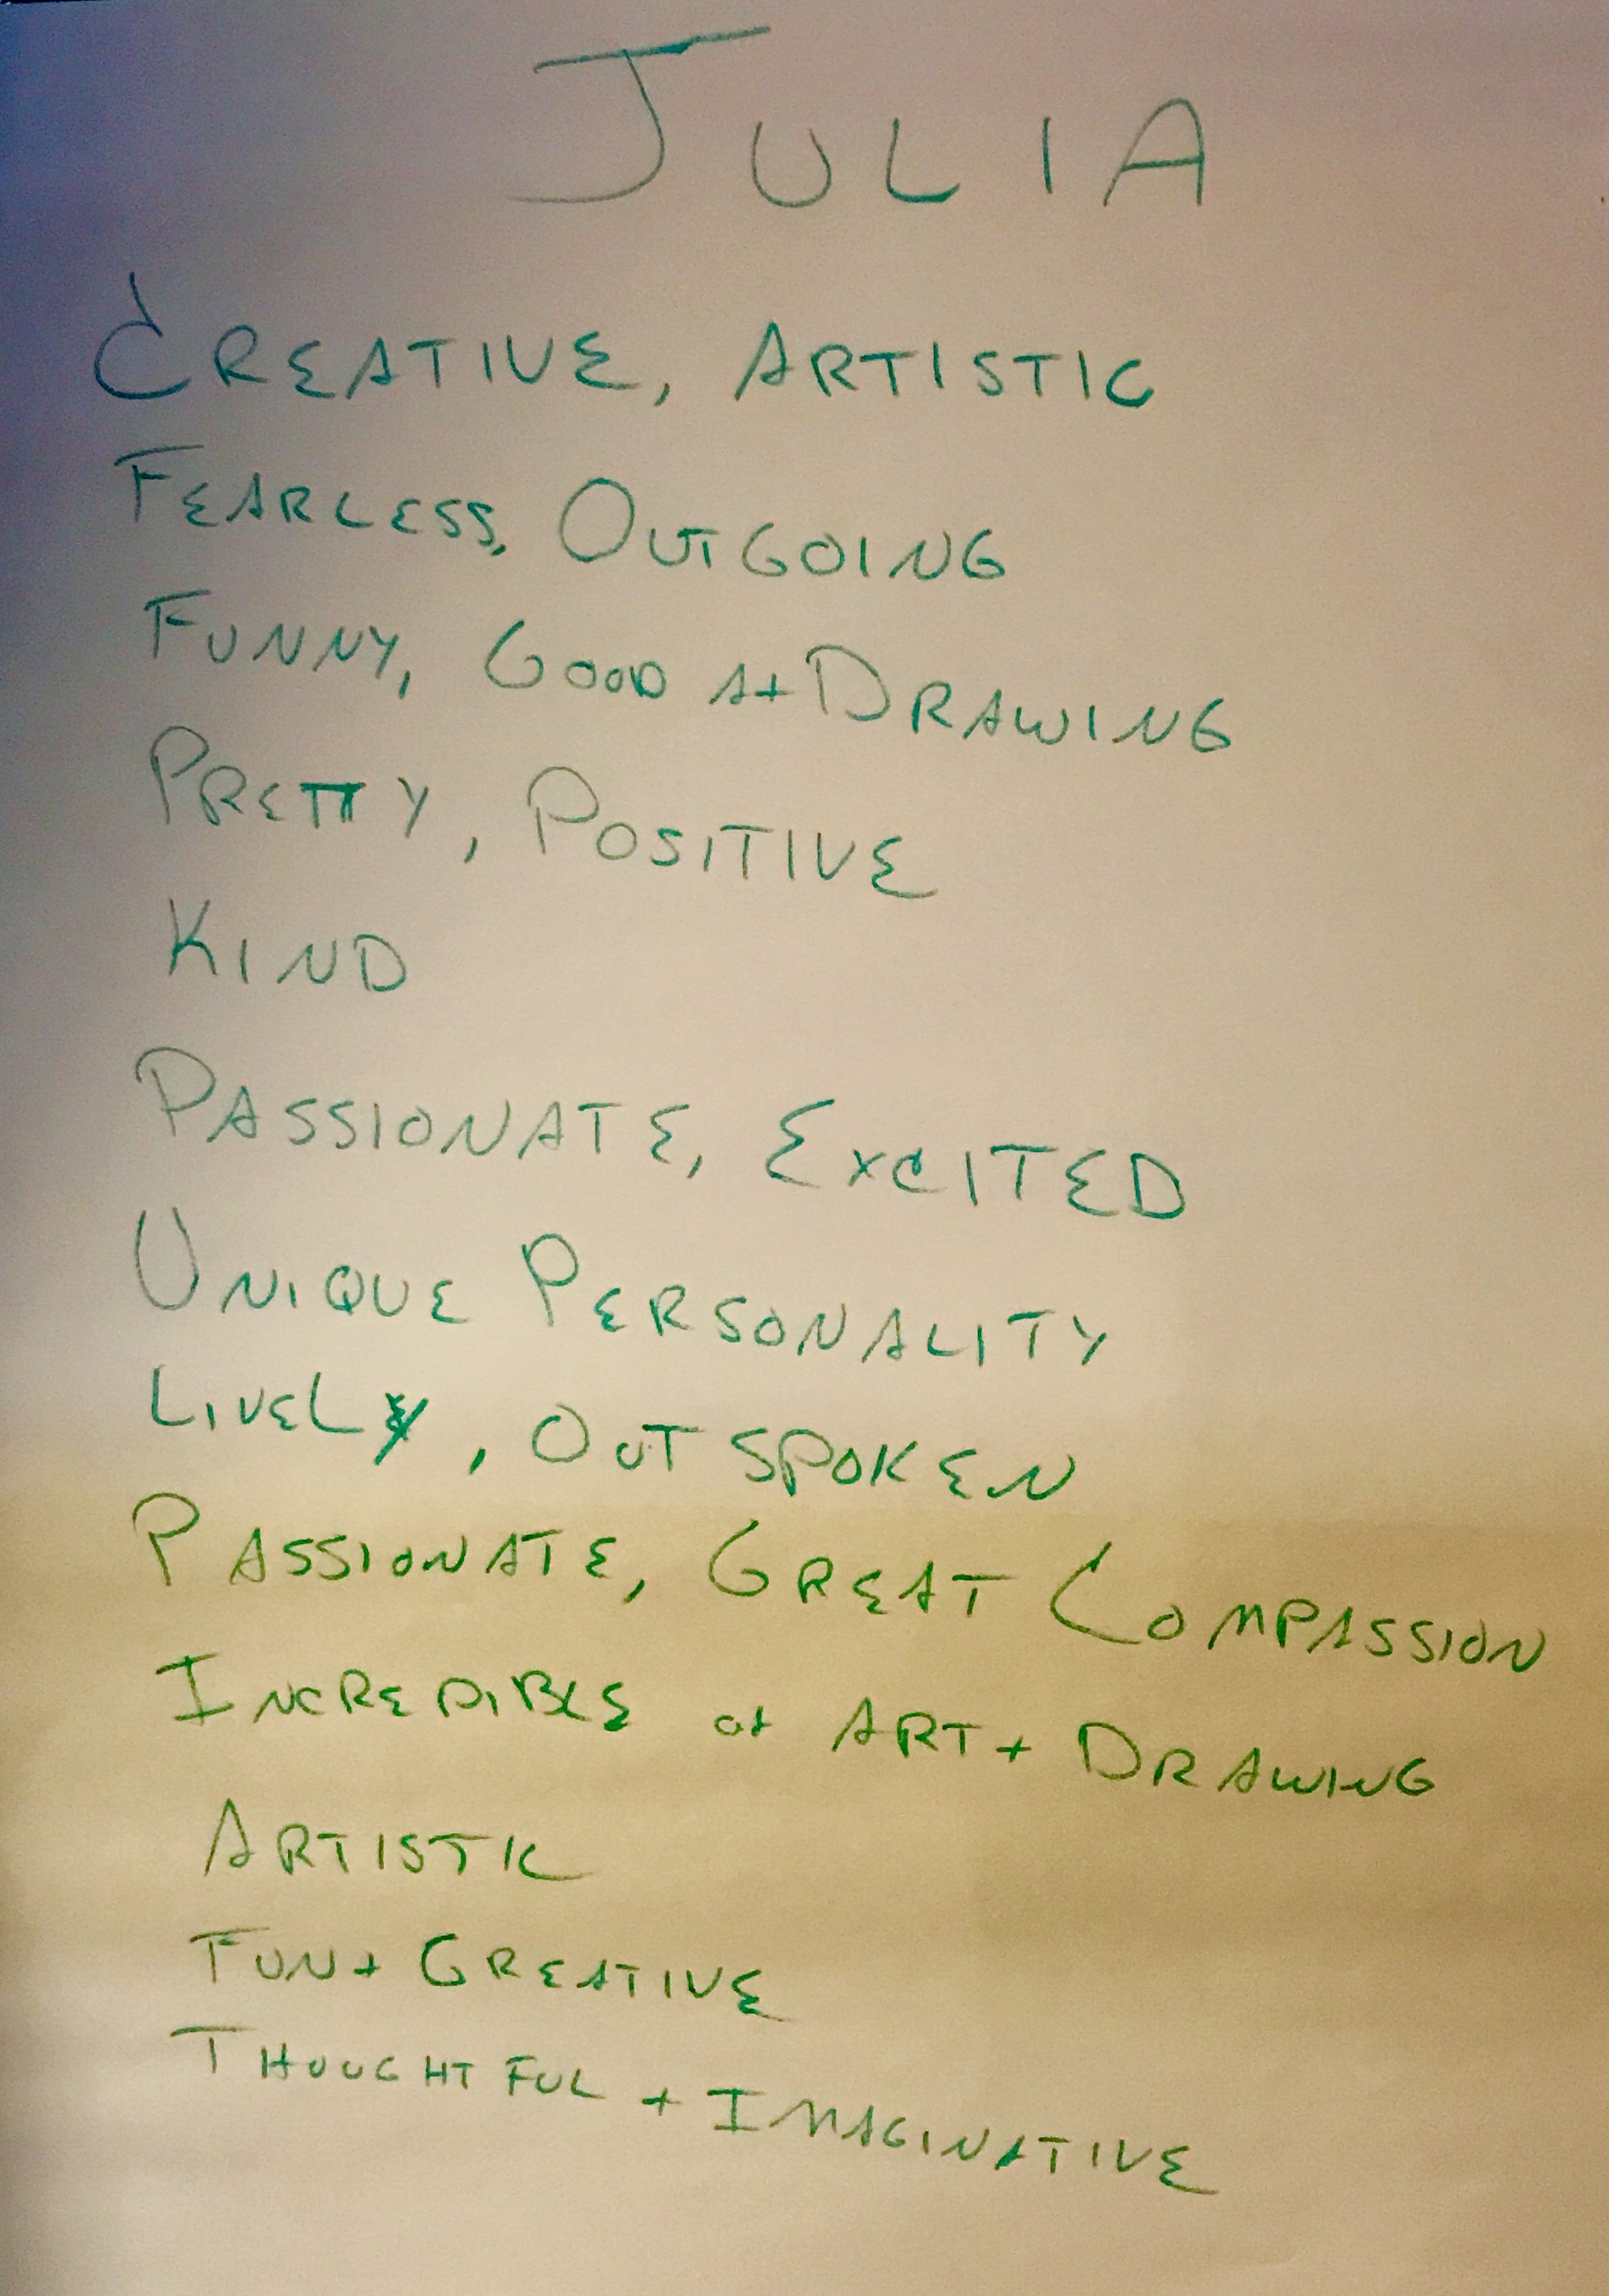 JULIA
CREATIVE, ARTISTIC
FEARLESS, OUTGOING
FUNNY, GOOD At DRAWING
PRETTY, POSITIVE
KIND
PASSIONATE, EXCITED
UNIQUE PERSONALITY
LIVELY, OUTSPOKEN
PASSIONATE, GREAT COMPASSION
INCREDIBLE at ART + DRAWING
ARTISTIC
FUN + CREATIVE
THOUGHTFUL + IMAGINATIVE